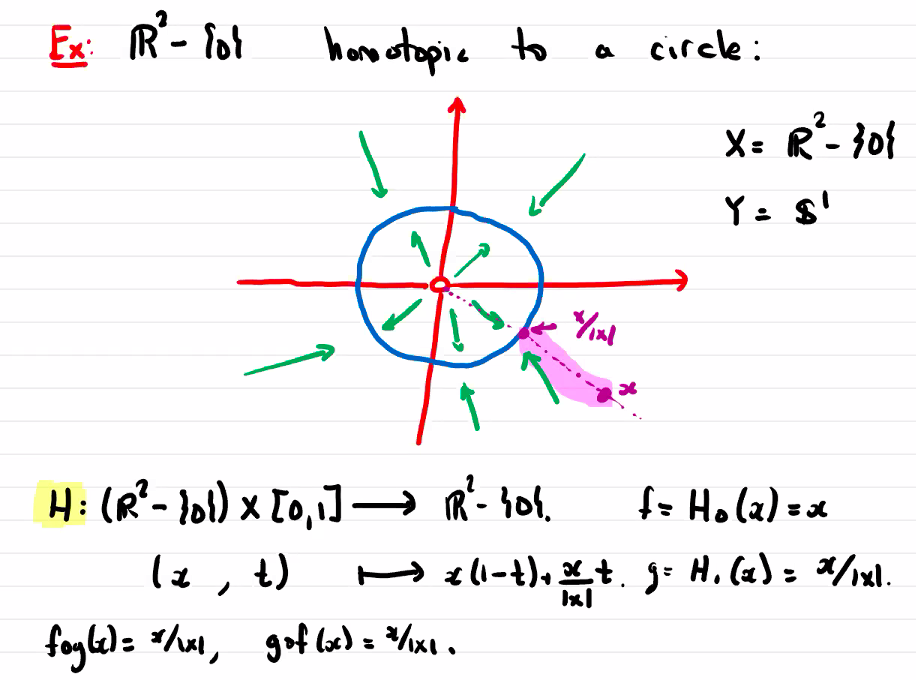 Ex: ℝ² - {0} homotopic to a circle:
X = ℝ² - {0}
Y = 𝕊¹
x/|x|
x
H: (ℝ² - {0}) × [0,1] ⟶ ℝ² - {0}. f = H₀(x) = x
(x , t) ⟼ x(1-t) + x/|x| t. g = H₁(x) = x/|x|.
fog(x) = x/|x|, gof(x) = x/|x|.